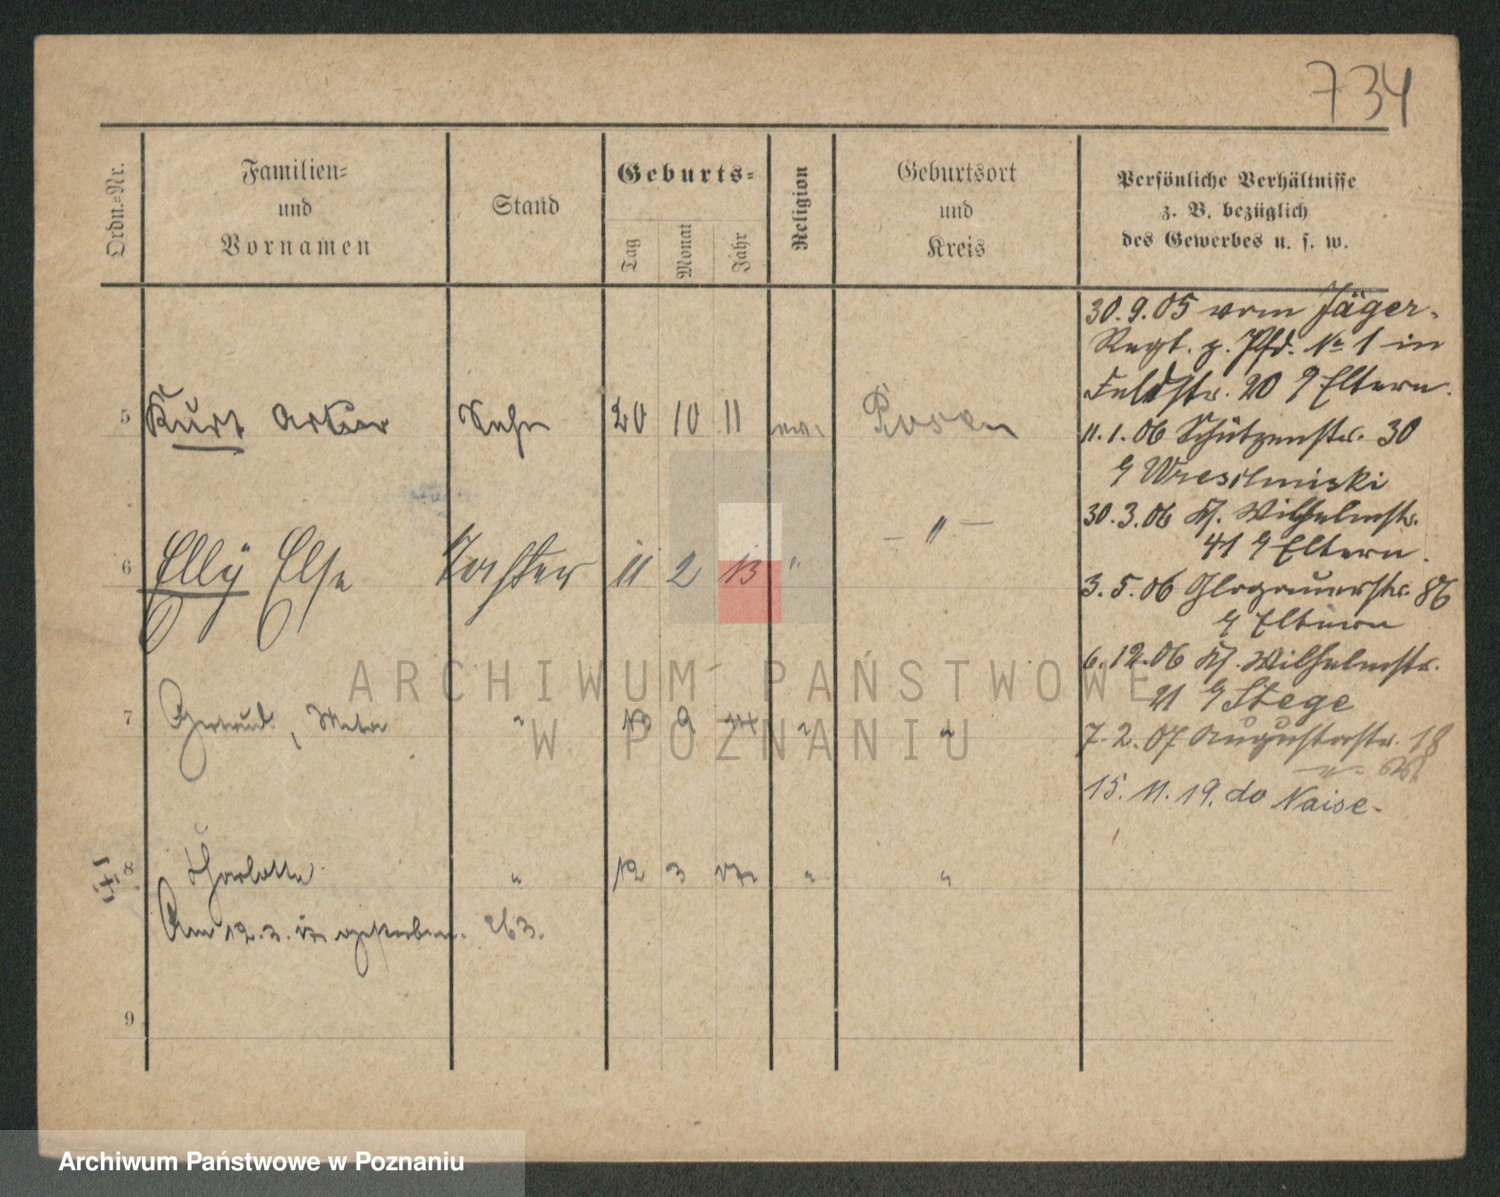 734
Ordn.-Nr.
Familien-
und
Vornamen
Stand
Geburts-
Tag
Monat
Jahr
Religion
Geburtsort
und
Kreis
Persönliche Verhältnisse
z. B. bezüglich
des Gewerbes u. s. w.
5 Kurt Artur Sohn 20 10 11 ev. Posen
6 Elly Else Tochter 11 2 13 " — " —
7 Gertrud, Meta " 13 9 14 " "
8 Charlotte " 12 3 17 " "
Am 12.3. 17 gestorben. 263.
9
30.9.05 vom Jäger-
Regt. z. Pfd. № 1 in
Feldstr. 20 b/ Eltern.
11.1.06 Schützenstr. 30
b/
30.3.06 Kl. Wilhelmstr.
41 b/ Eltern.
3.5.06 Glogauerstr. 86
b/ Eltern
6.12.06 Kl. Wilhelmstr.
21 b/ Stege
7.2.07 Augustastr. 18
— " —
15.11.19. do Naise.
ARCHIWUM PAŃSTWOWE
W POZNANIU
Archiwum Państwowe w Poznaniu